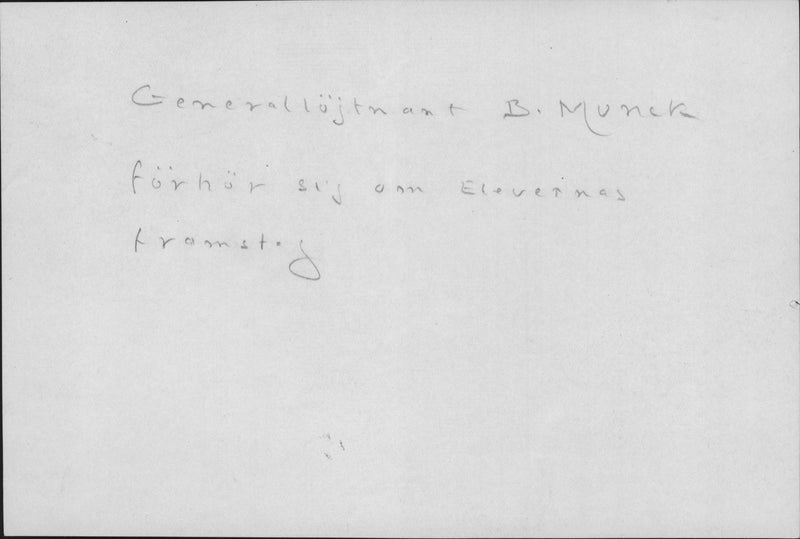 Generallöjtnant B. Munck
förhör sig om Elevernas
framsteg